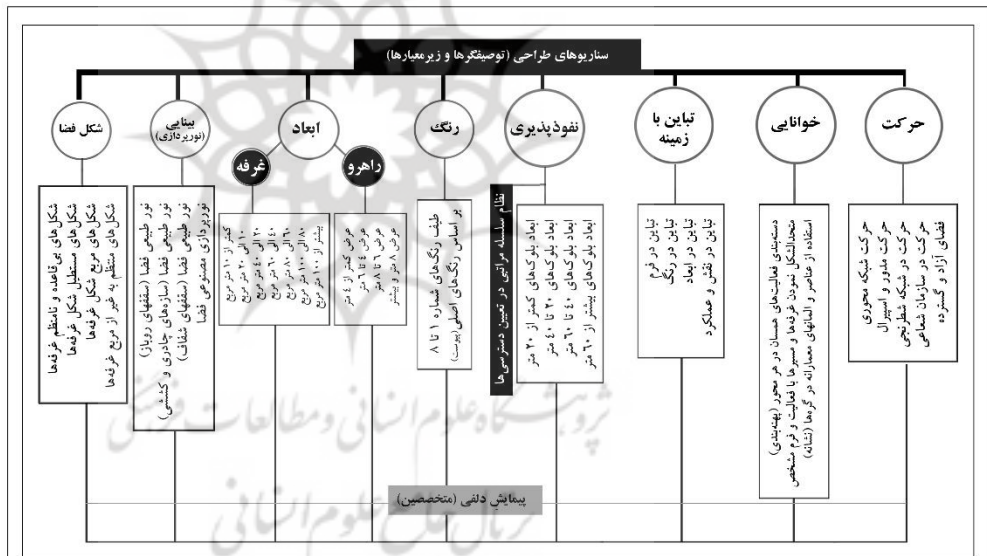 سناریوهای طراحی (توصیفگرها و زیرمعیارها)
حرکت
حرکت شبکه محوری
حرکت مدور و اسپیرال
حرکت در شبکه شطرنجی
حرکت در سازمان شعاعی
فضای آزاد و گسترده
خوانایی
دسته‌بندی فعالیت‌های همسان در هر محور (پهنه‌بندی)
متحدالشکل نمودن غرفه‌ها و مسیرها با فعالیت و فرم مشخص
استفاده از عناصر و المانهای معمارانه در گره‌ها (نشانه)
تباین با
زمینه
تباین در فرم
تباین در رنگ
تباین در ابعاد
تباین در نقش و عملکرد
نفوذپذیری
نظام سلسله مراتبی در تعیین دسترسی‌ها
ابعاد بلوک‌های کمتر از ۲۰ متر
ابعاد بلوک‌های ۲۰ تا ۴۰ متر
ابعاد بلوک‌های ۴۰ تا ۶۰ متر
ابعاد بلوک‌های بیشتر از ۶۰ متر
رنگ
طیف رنگ‌های شماره ۱ تا ۸
بر اساس رنگ‌های اصلی (پیوست)
ابعاد
راهرو
عرض کمتر از ۴ متر
عرض ۴ تا ۶ متر
عرض ۶ تا ۸ متر
عرض ۸ متر و بیشتر
غرفه
کمتر از ۱۰ متر مربع
۱۰ الی ۲۰ متر مربع
۲۰ الی ۴۰ متر مربع
۴۰ الی ۶۰ متر مربع
۶۰ الی ۸۰ متر مربع
۸۰ الی ۱۰۰ متر مربع
بیشتر از ۱۰۰ متر مربع
بینایی
(نورپردازی)
نور طبیعی فضا (سقفهای روباز)
نور طبیعی فضا (سازه‌های چادری و کششی)
نور طبیعی فضا (سقفهای شفاف)
نورپردازی مصنوعی فضا
شکل فضا
شکل‌های بی‌قاعده و نامنظم غرفه‌ها
شکل‌های مستطیل شکل غرفه‌ها
شکل‌های مربع شکل غرفه‌ها
شکل‌های منتظم به غیر از مربع غرفه‌ها
پیمایش دلفی (متخصصین)
پژوهشگاه علوم انسانی و مطالعات فرهنگی
پرتال جامع علوم انسانی